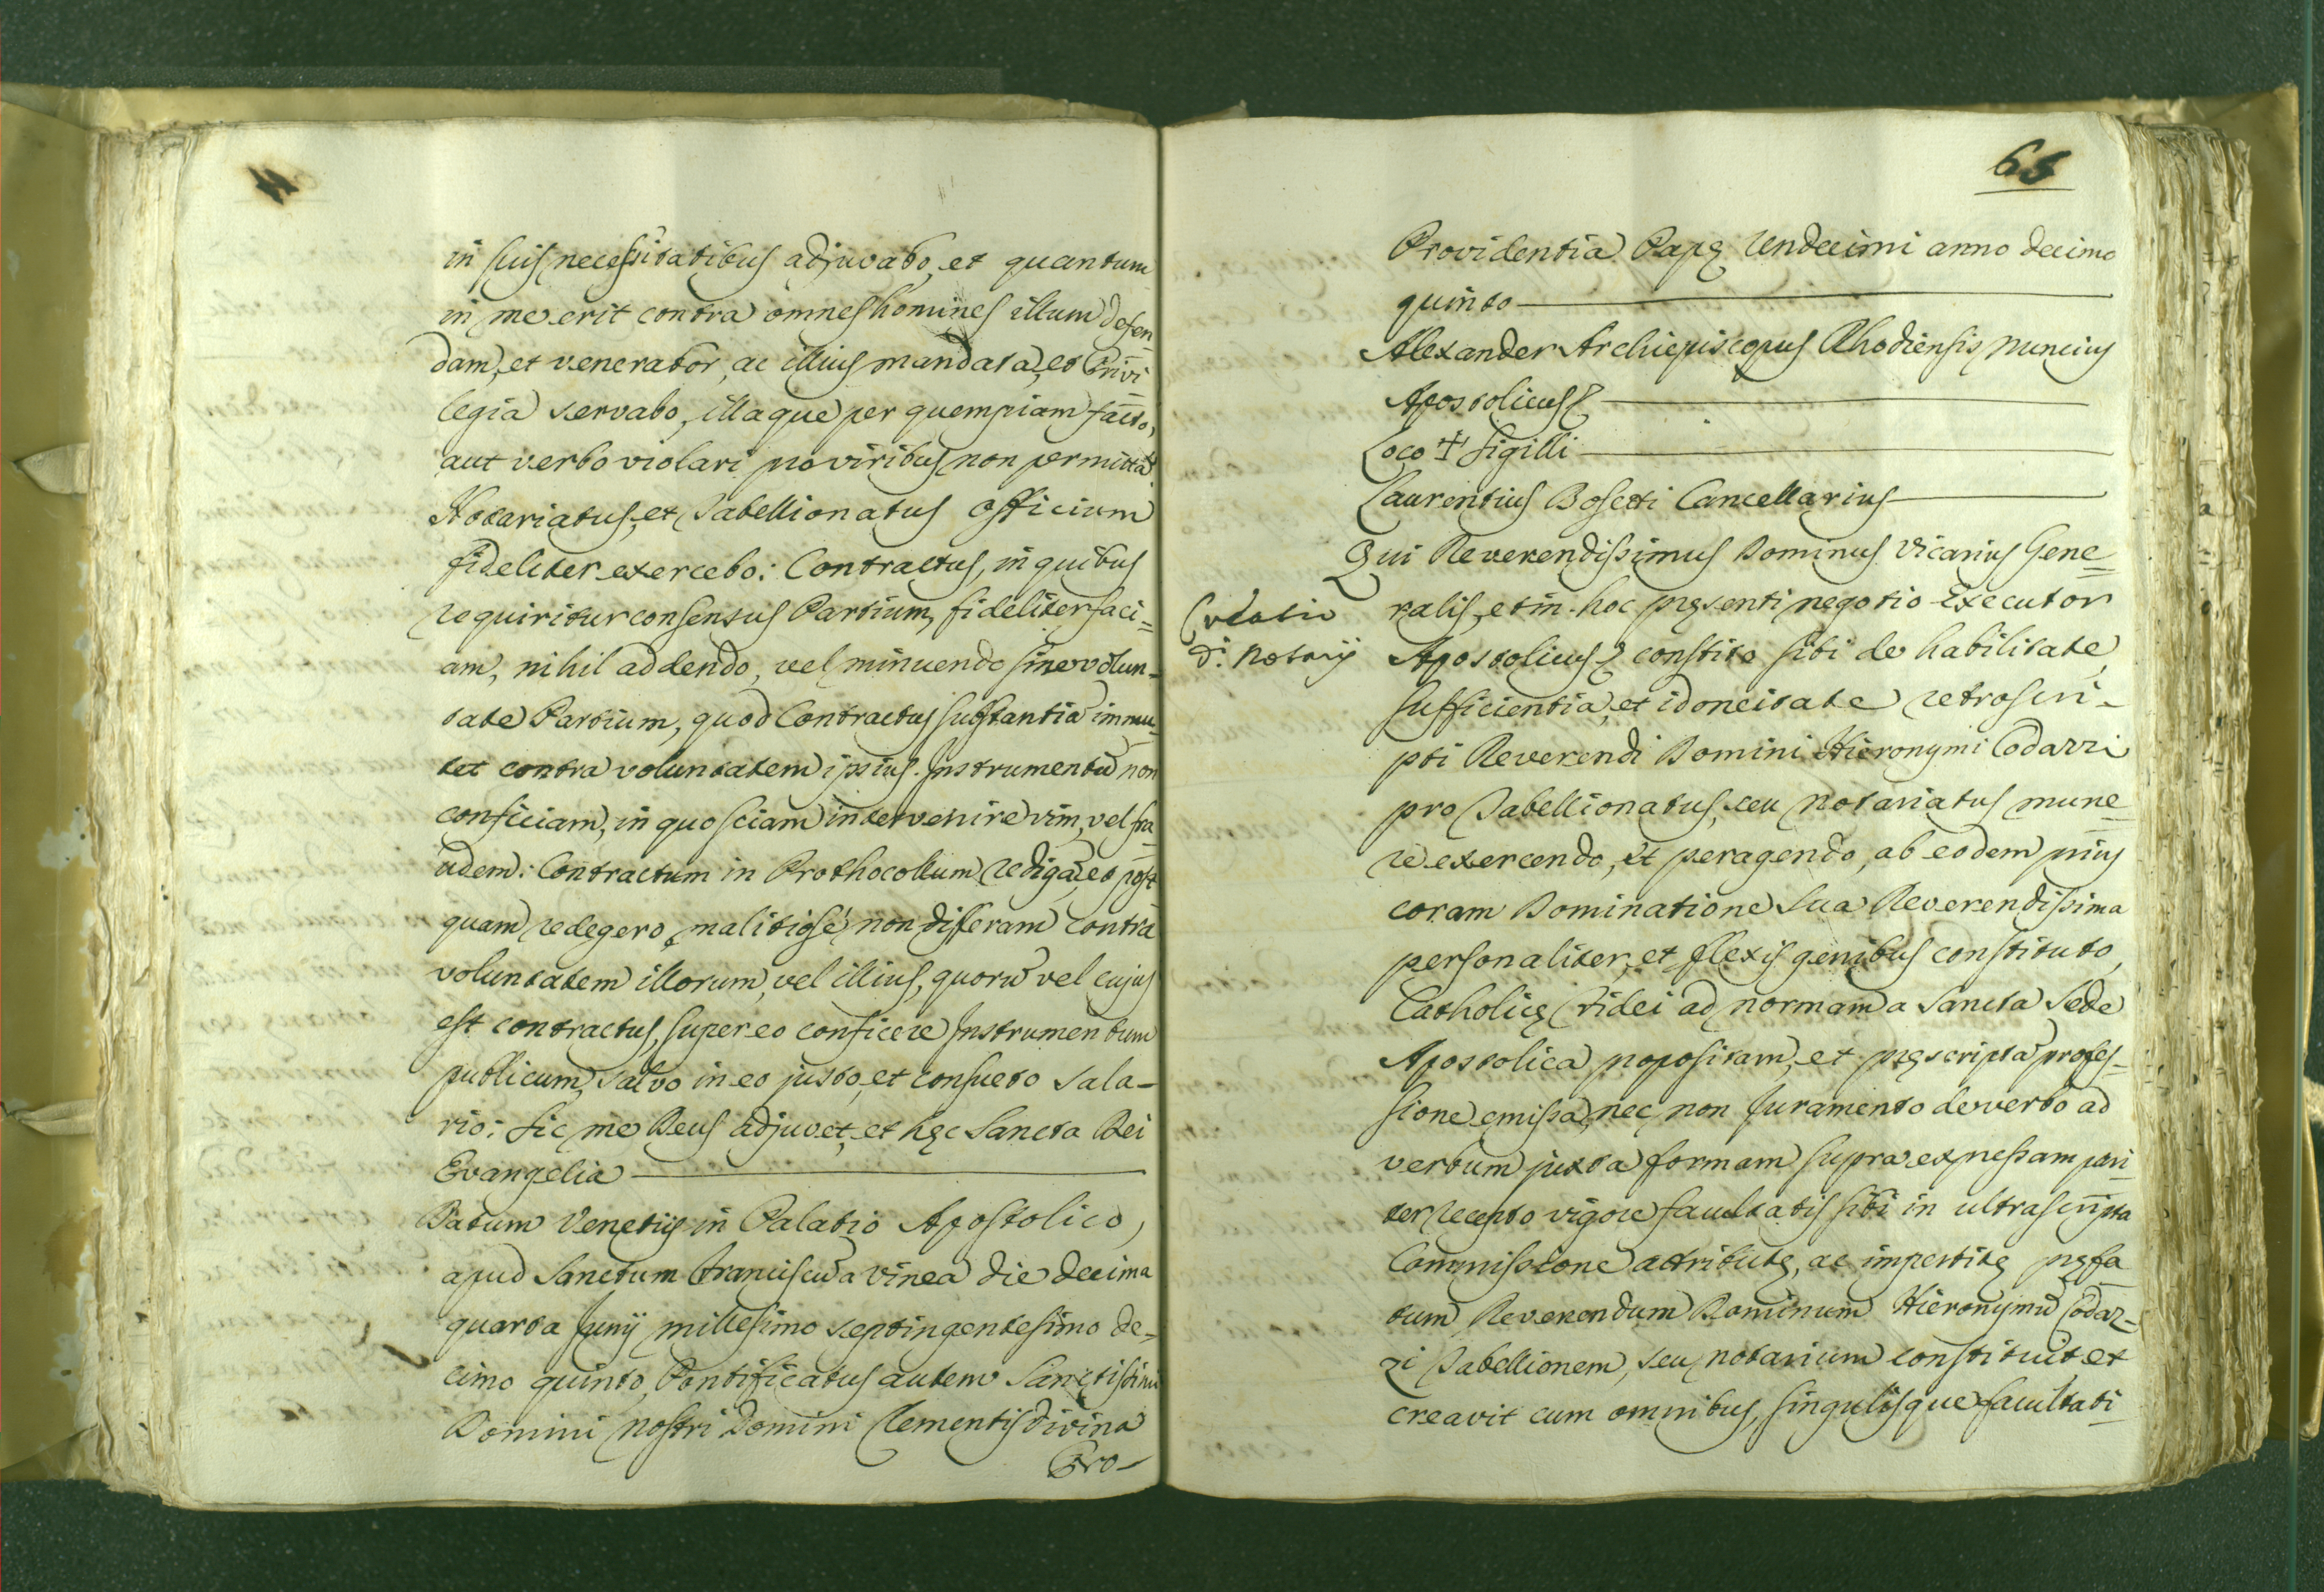 in suis necessitatibus adjuvabo, et quantum
in me erit contra omnes homines illum defen
dam, et venerabor, ac illius mandata, et Privi
legia servabo, illaque per quempiam facto,
aut verbo violari pro viribus non permittā
Notariatus, et Tabellionatus officium
fideliter exercebo: Contractus, in quibus
requiritur consensus Partium, fideliter faci=
am, nihil addendo, vel minuendo sine volun-
tate Partium, quod Contractus substantiā immu=
tet contra voluntatem ipsius. Instrumentū non
conficiam, in quo sciam intervenire vim, vel fra
udem: Contractum in Prothocollum redigā, et post
quam redegero, malitiosé non differam contra
voluntatem illorum, vel illius, quorū vel cujus
est contractus, super eo conficere Instrumentum
publicum, salvo in eo justo, et consueto sala-
rio: sic me Deus adjuvet, et hęc Sancta Dei
Evangelia
Datum Venetiis in Palatio Apostolico,
apud Sanctum Franciscū a Vinea die decima
quarta Junij millesimo septingentesimo de-
cimo quinto, Pontificatus autem Sanctissimi
Domini Nostri Domini Clementis divina
Pro-
65
Providentia Papę Undecimi anno decimo
quinto
Alexander Archiepiscopus Rhodiensis Nuncius
Apostolicus
Loco + Sigilli
Laurentius Bosetti Cancellarius
Qui Reverendissimus Dominus Vicarius Gene=
Creatio
d.i Notarij
ralis, et in hoc pręsenti negotio Executor
Apostolicus constito sibi de habilitate,
sufficientia, et idoneitate retroscri-
pti Reverendi Domini Hieronymi Codazzi
pro Tabellionatus, seu Notariatus mune=
re exercendo, et peragendo, ab eodem prius
coram Dominatione Sua Reverendissima
personaliter, et flexis genibus constituto,
Catholicę Fidei ad normam a Sancta Sede
Apostolica propositam, et pręscriptā profes=
sione emissa, nec non Juramento de verbo ad
verbum juxta formam supra expressam pari=
ter recepto vigore facultatis sibi in ultrascripta
Commissione attributę, ac impertitę pręfa
tum Reverendum Dominum Hieronymū Codaz=
zi Tabellionem, seu Notarium constituit et
creavit cum omnibus, singulisque facultati=